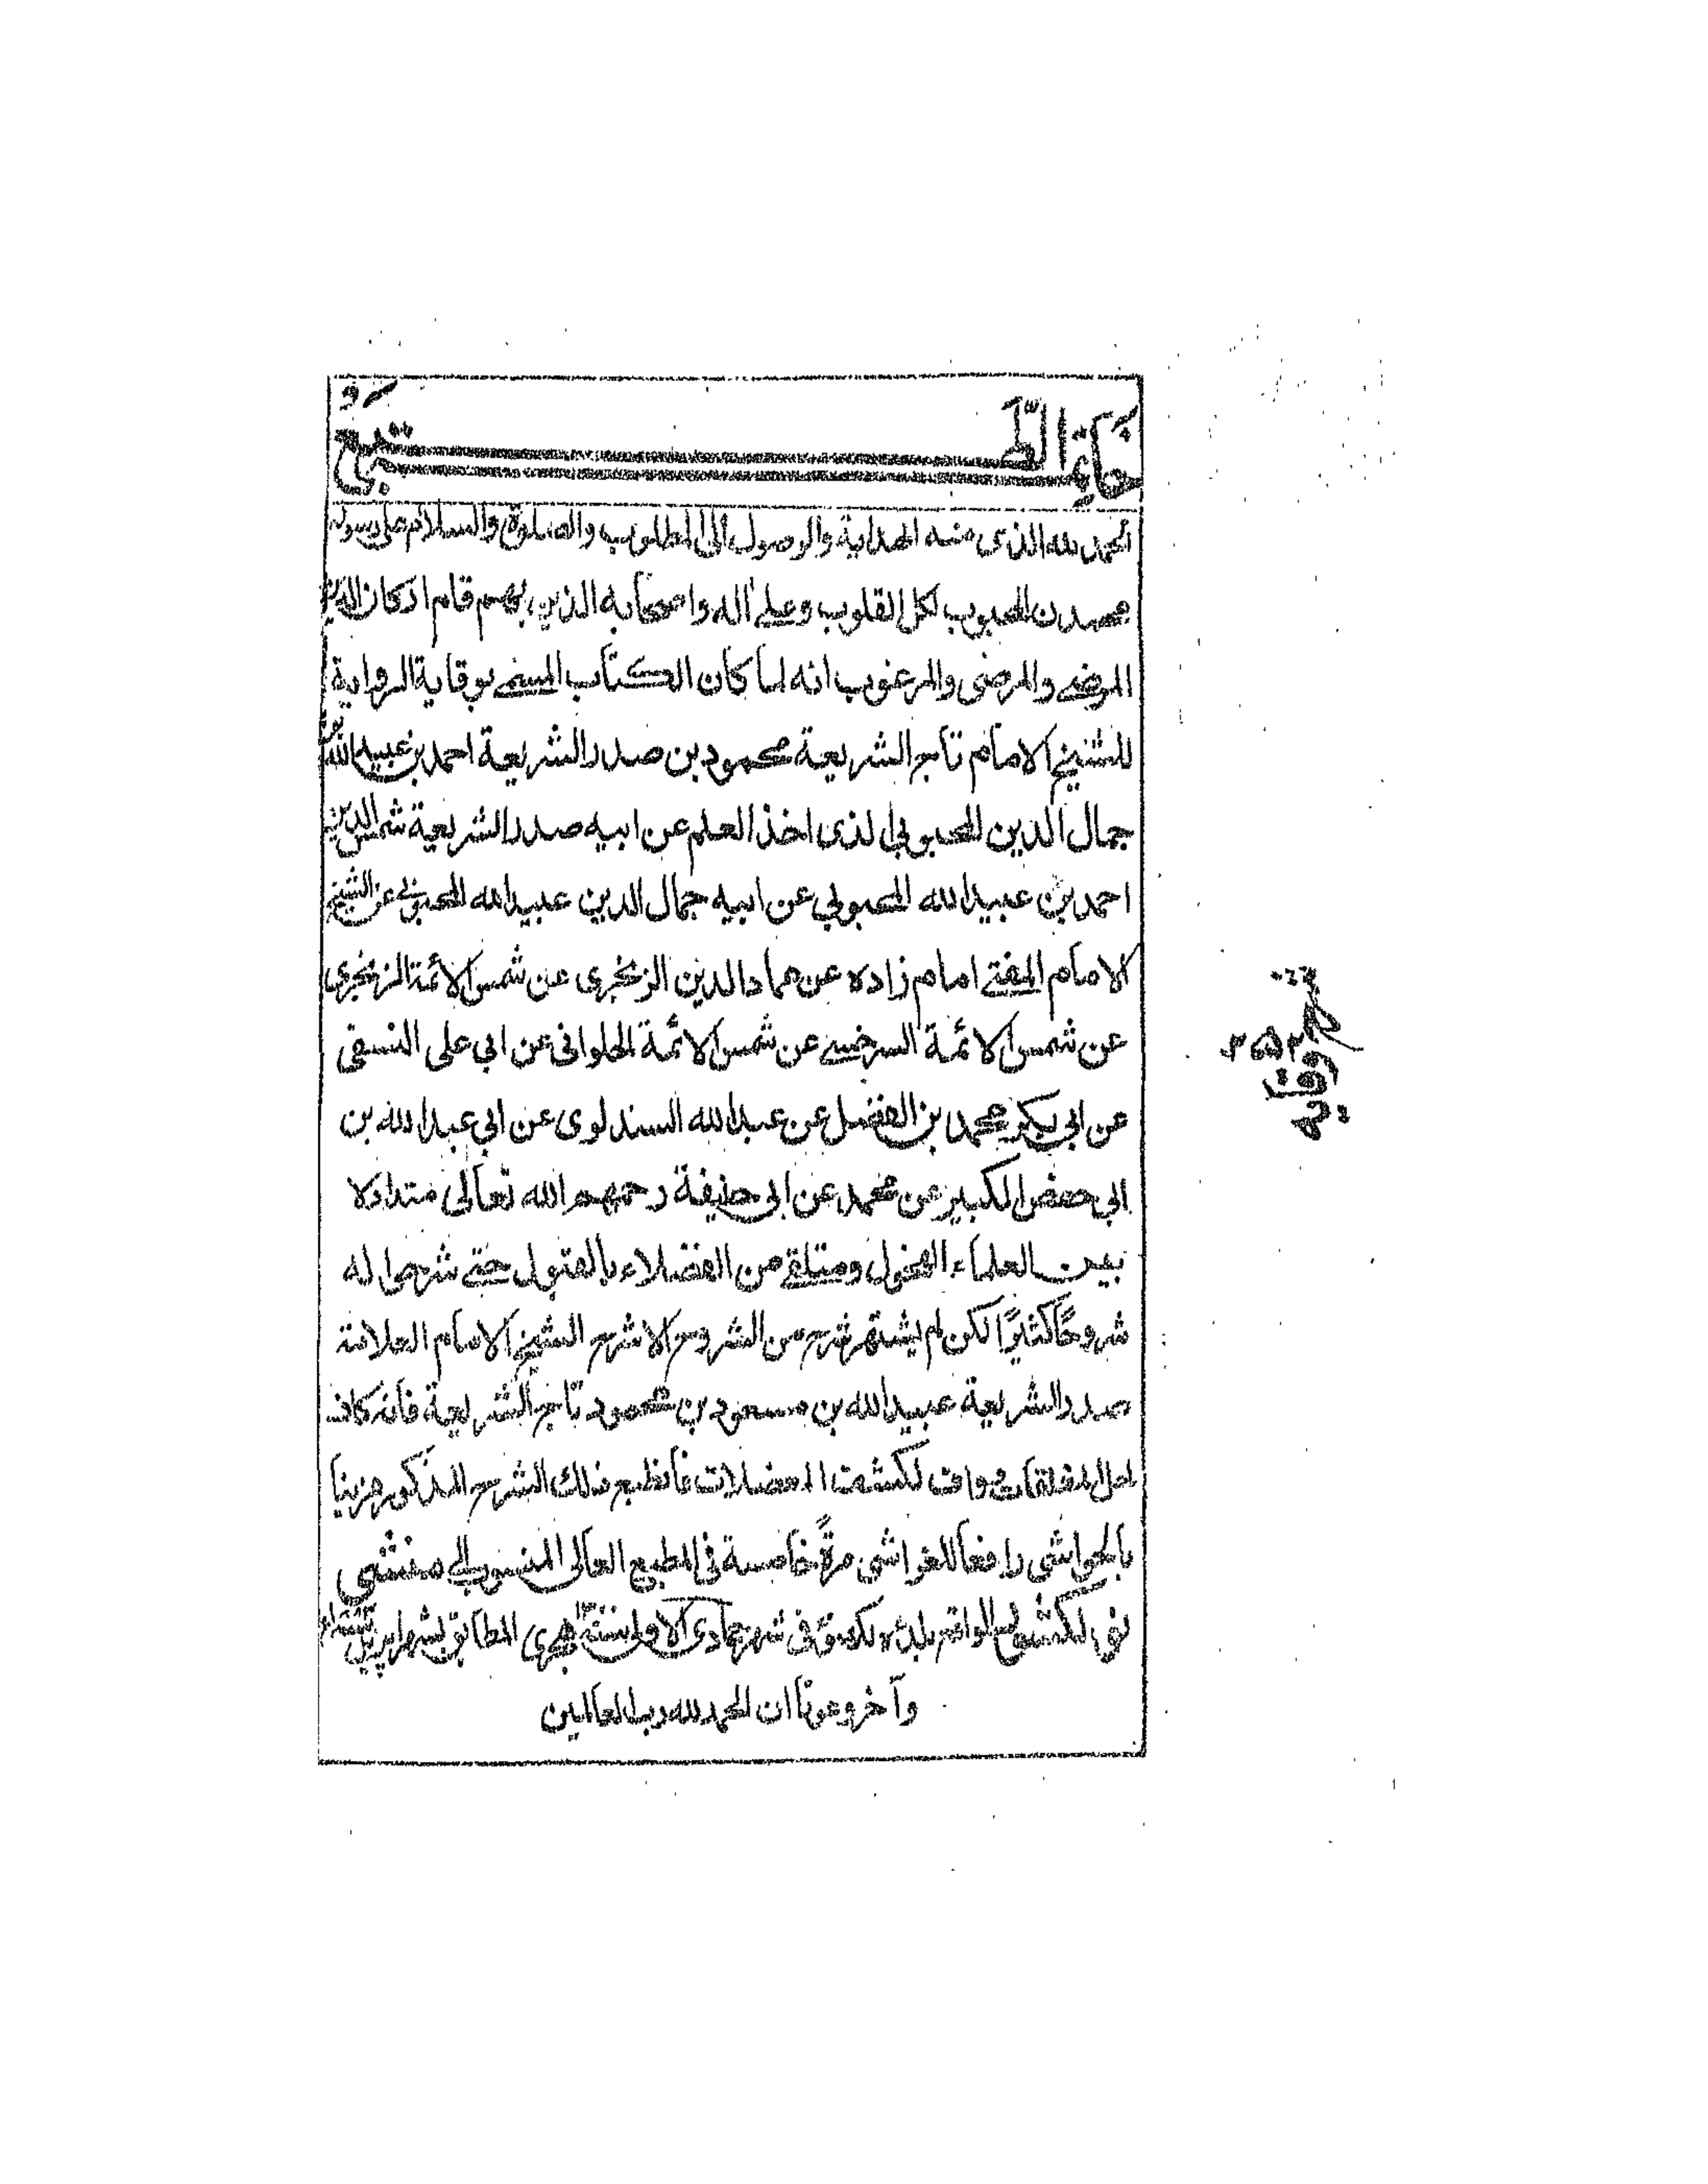 خاتمة الطبع
الحمد لله الذى منه الهداية والوصول الى المطلوب والصلوة والسلام على رسوله
محمدن المحبوب لكل القلوب وعلى اله واصحابه الذين بهم قام اركان الدين
المرضى والمرغوب انه لما كان الكتاب المسمى بوقاية الرواية
للشيخ الامام تاج الشريعة محمود بن صدر الشريعة احمد بن عبيد الله بن
جمال الدين المحبوبي الذى اخذ العلم عن ابيه صدر الشريعة شمس الدين
احمد بن عبيد الله المحبوبي عن ابيه جمال الدين عبيد الله المحبوبي عن الشيخ
الامام المفتى امام زاده عن عماد الدين الزرنجرى عن شمس الائمة الزرنجرى
عن شمس الائمة السرخسى عن شمس الائمة الحلوانى عن ابي على النسفى
عن ابي بكر محمد بن الفضل عن عبد الله السندلوى عن ابي عبد الله بن
ابي حفص الكبير عن محمد عن ابى حنيفة رحمهم الله تعالى متداولا
بين العلماء الفحول ومتلقى من الفضلاء بالقبول حتى شرحوا له
شروحًا كثيرًا لكن لم يشتهر شرح من الشروح الا شرح الشيخ الامام العلامة
صدر الشريعة عبيد الله بن مسعود بن محمود تاج الشريعة فانه كاف
لحل المغلقات وواف لكشف المعضلات فانطبع ذلك الشرح المذكور مزينا
بالحواشى رافعا للغواشى مرةً خامسة فى المطبع العالى المنسوب الى منشى
نول كشور الواقع ببلدة لكهنؤ فى شهر جمادى الاولى سنة هجرى المطابق بشهر اپريل
وآخر دعونا ان الحمد لله رب العالمين